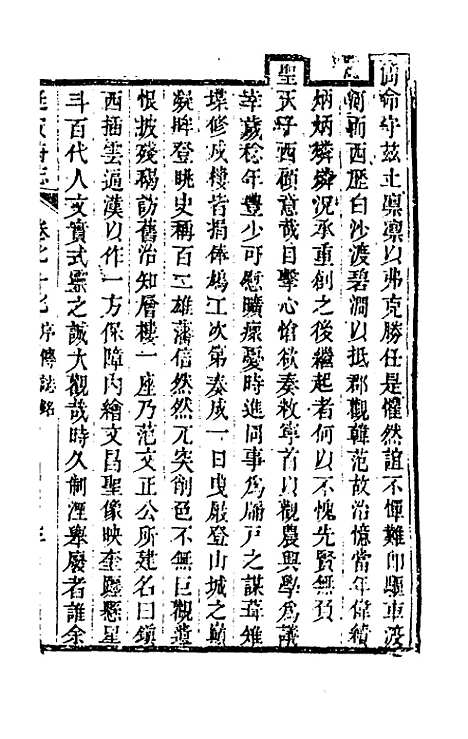 命守茲土凛凛以弗克勝任是懼然誼不憚難即驅車渡
而西歷白沙渡碧澗以抵郡觀韓范故治憶當年偉績
炳炳燐燐況承重創之後繼起者何以不愧先賢無負
聖
天子西顧意哉目擊心愴欲奏救寧首以觀農興學為議
幸歲稔年豐少可慰曠瘝憂時進同事為牖戶之謀葺雉
堞修戍樓皆捐俸鳩工次第奏成一日曳屐登山城之巔
凝眸登眺史稱百二雄藩信然然兀突削色不無巨觀遺
恨披殘碣訪舊治知層樓一座乃范文正公所建名曰鎮
西插雲逼漢以作一方保障內繪文昌聖像映奎躔懸星
斗百代人文實式靈之誠大觀哉時久制湮舉廢者誰余
延安府志 卷之十九 序傳誌銘